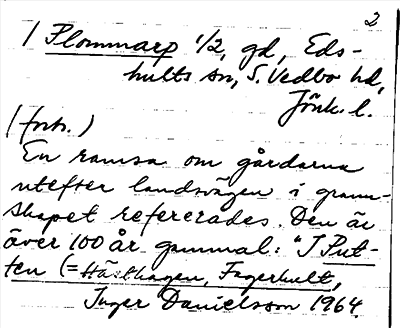 2
/ Plommarp 1/2, gd, Eds-
hults sn, S. Vedbo hd,
Jönk. l.
(forts.)
En ramsa om gårdarna
utefter landsvägen i grann-
skapet refererades. Den är
över 100 år gammal: "I Put-
ten (= Hästhagen, Fagerhult,
Inger Danielsson 1964.